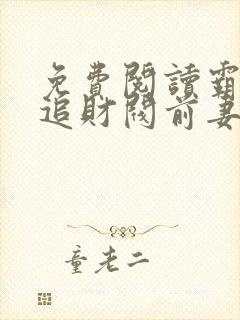 免費閱讀霸
追財閥前妻
童老二